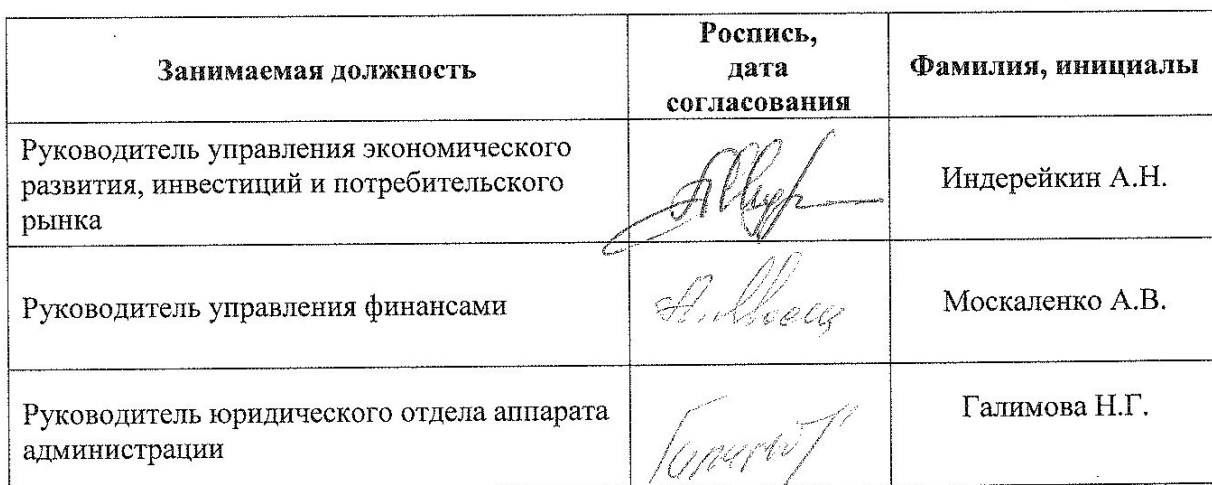 Занимаемая должность
Роспись,
дата
согласования
Фамилия, инициалы
Руководитель управления экономического
развития, инвестиций и потребительского
рынка
Индерейкин А.Н.
Руководитель управления финансами
Москаленко А.В.
Руководитель юридического отдела аппарата
администрации
Галимова Н.Г.